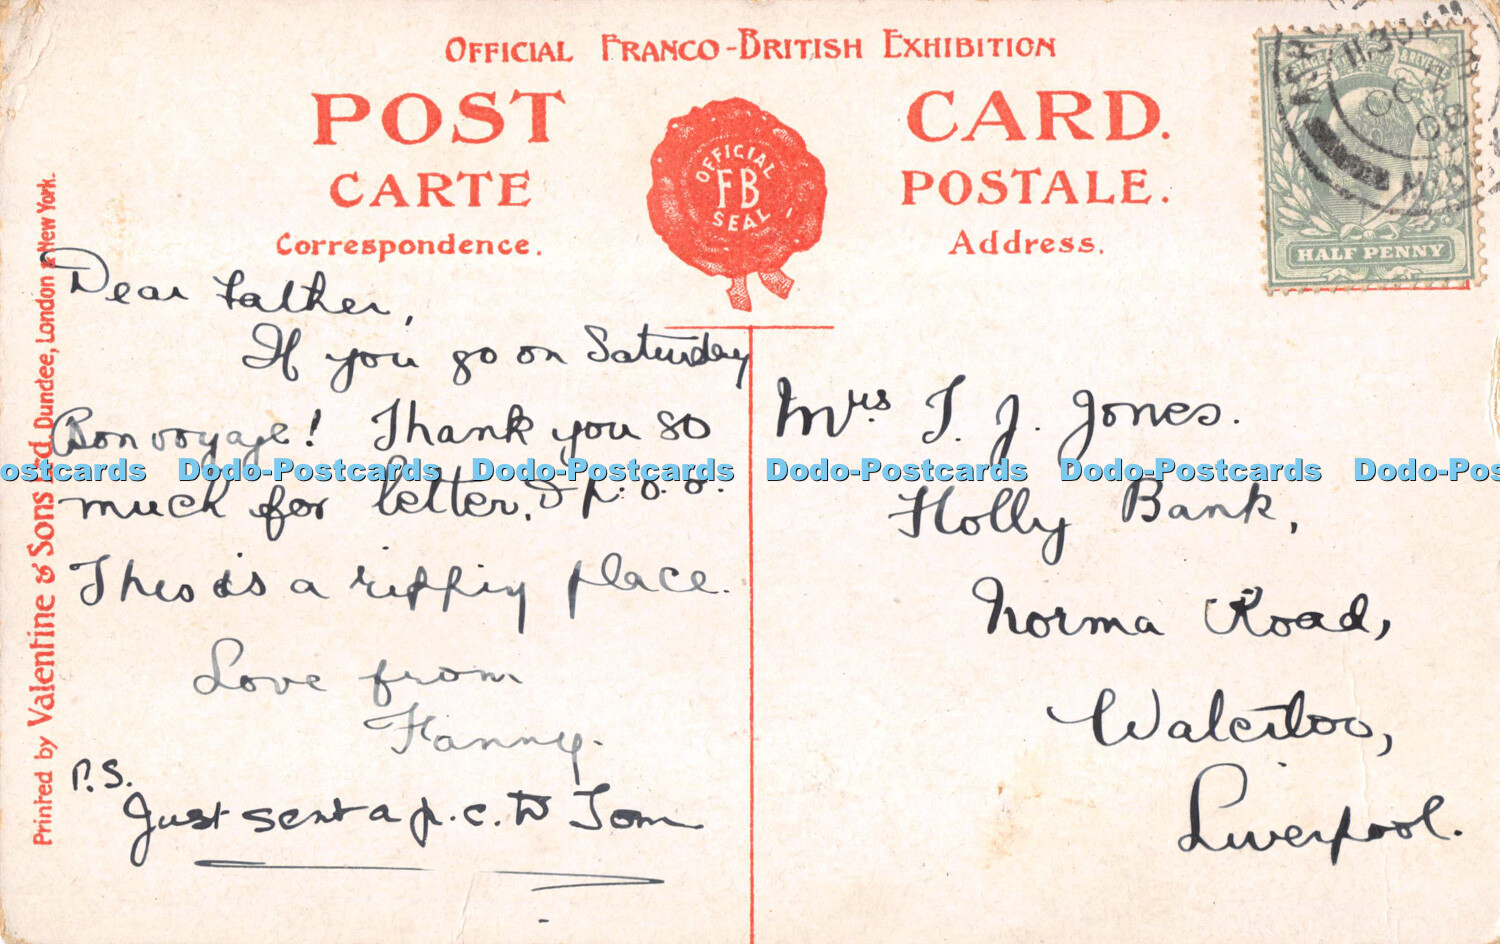 OFFICIAL FRANCO-BRITISH EXHIBITION
POST CARD.
CARTE POSTALE.
Correspondence. Address.
OFFICIAL
FB
SEAL
HALF PENNY
11.30 AM
OC
08
Printed by Valentine & Sons Ltd. Dundee, London & New York.
Dear Father,
If you go on Saturday
Bon voyage! Thank you so
much for letter, & p. o. o.
This is a ripping place.
Love from
Fanny.
P.S.
Just sent a p.c. to Tom
Mrs T. J. Jones.
Holly Bank,
Norma Road,
Waterloo,
Liverpool.
Dodo-Postcards Dodo-Postcards Dodo-Postcards Dodo-Postcards Dodo-Postcards